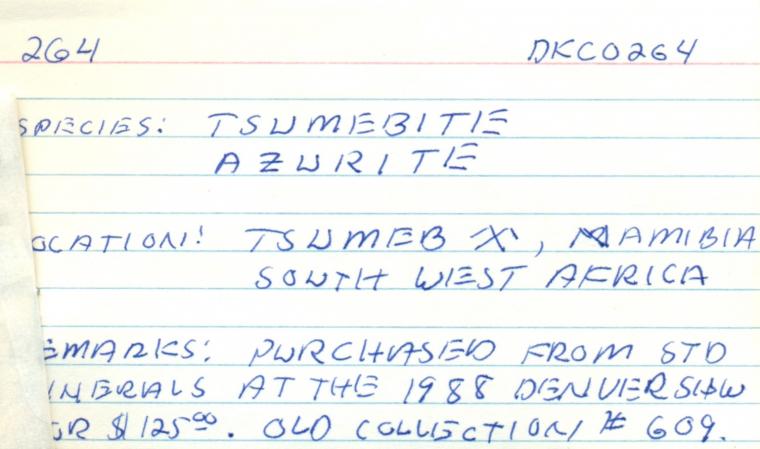 264 DKC0264
SPECIES: TSUMEBITE
AZURITE
OCATION: TSUMEB X, NAMIBIA
SOUTH WEST AFRICA
EMARKS: PURCHASED FROM STD
INERALS AT THE 1988 DENVER SHW
OR $125.00. OLD COLLECTION # 609.